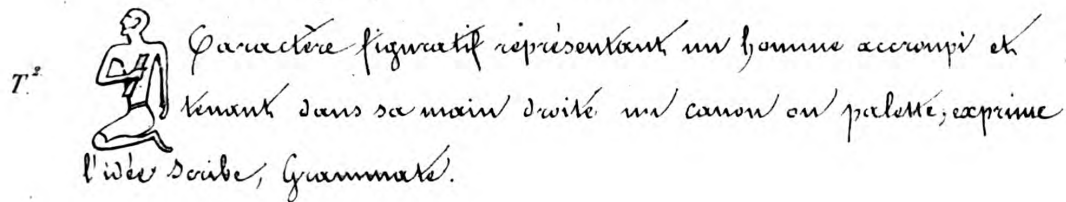 T². Caractère figuratif représentant un homme accroupi et
tenant dans sa main droite un canon ou palette, exprime
l'idée Scribe, Grammate.